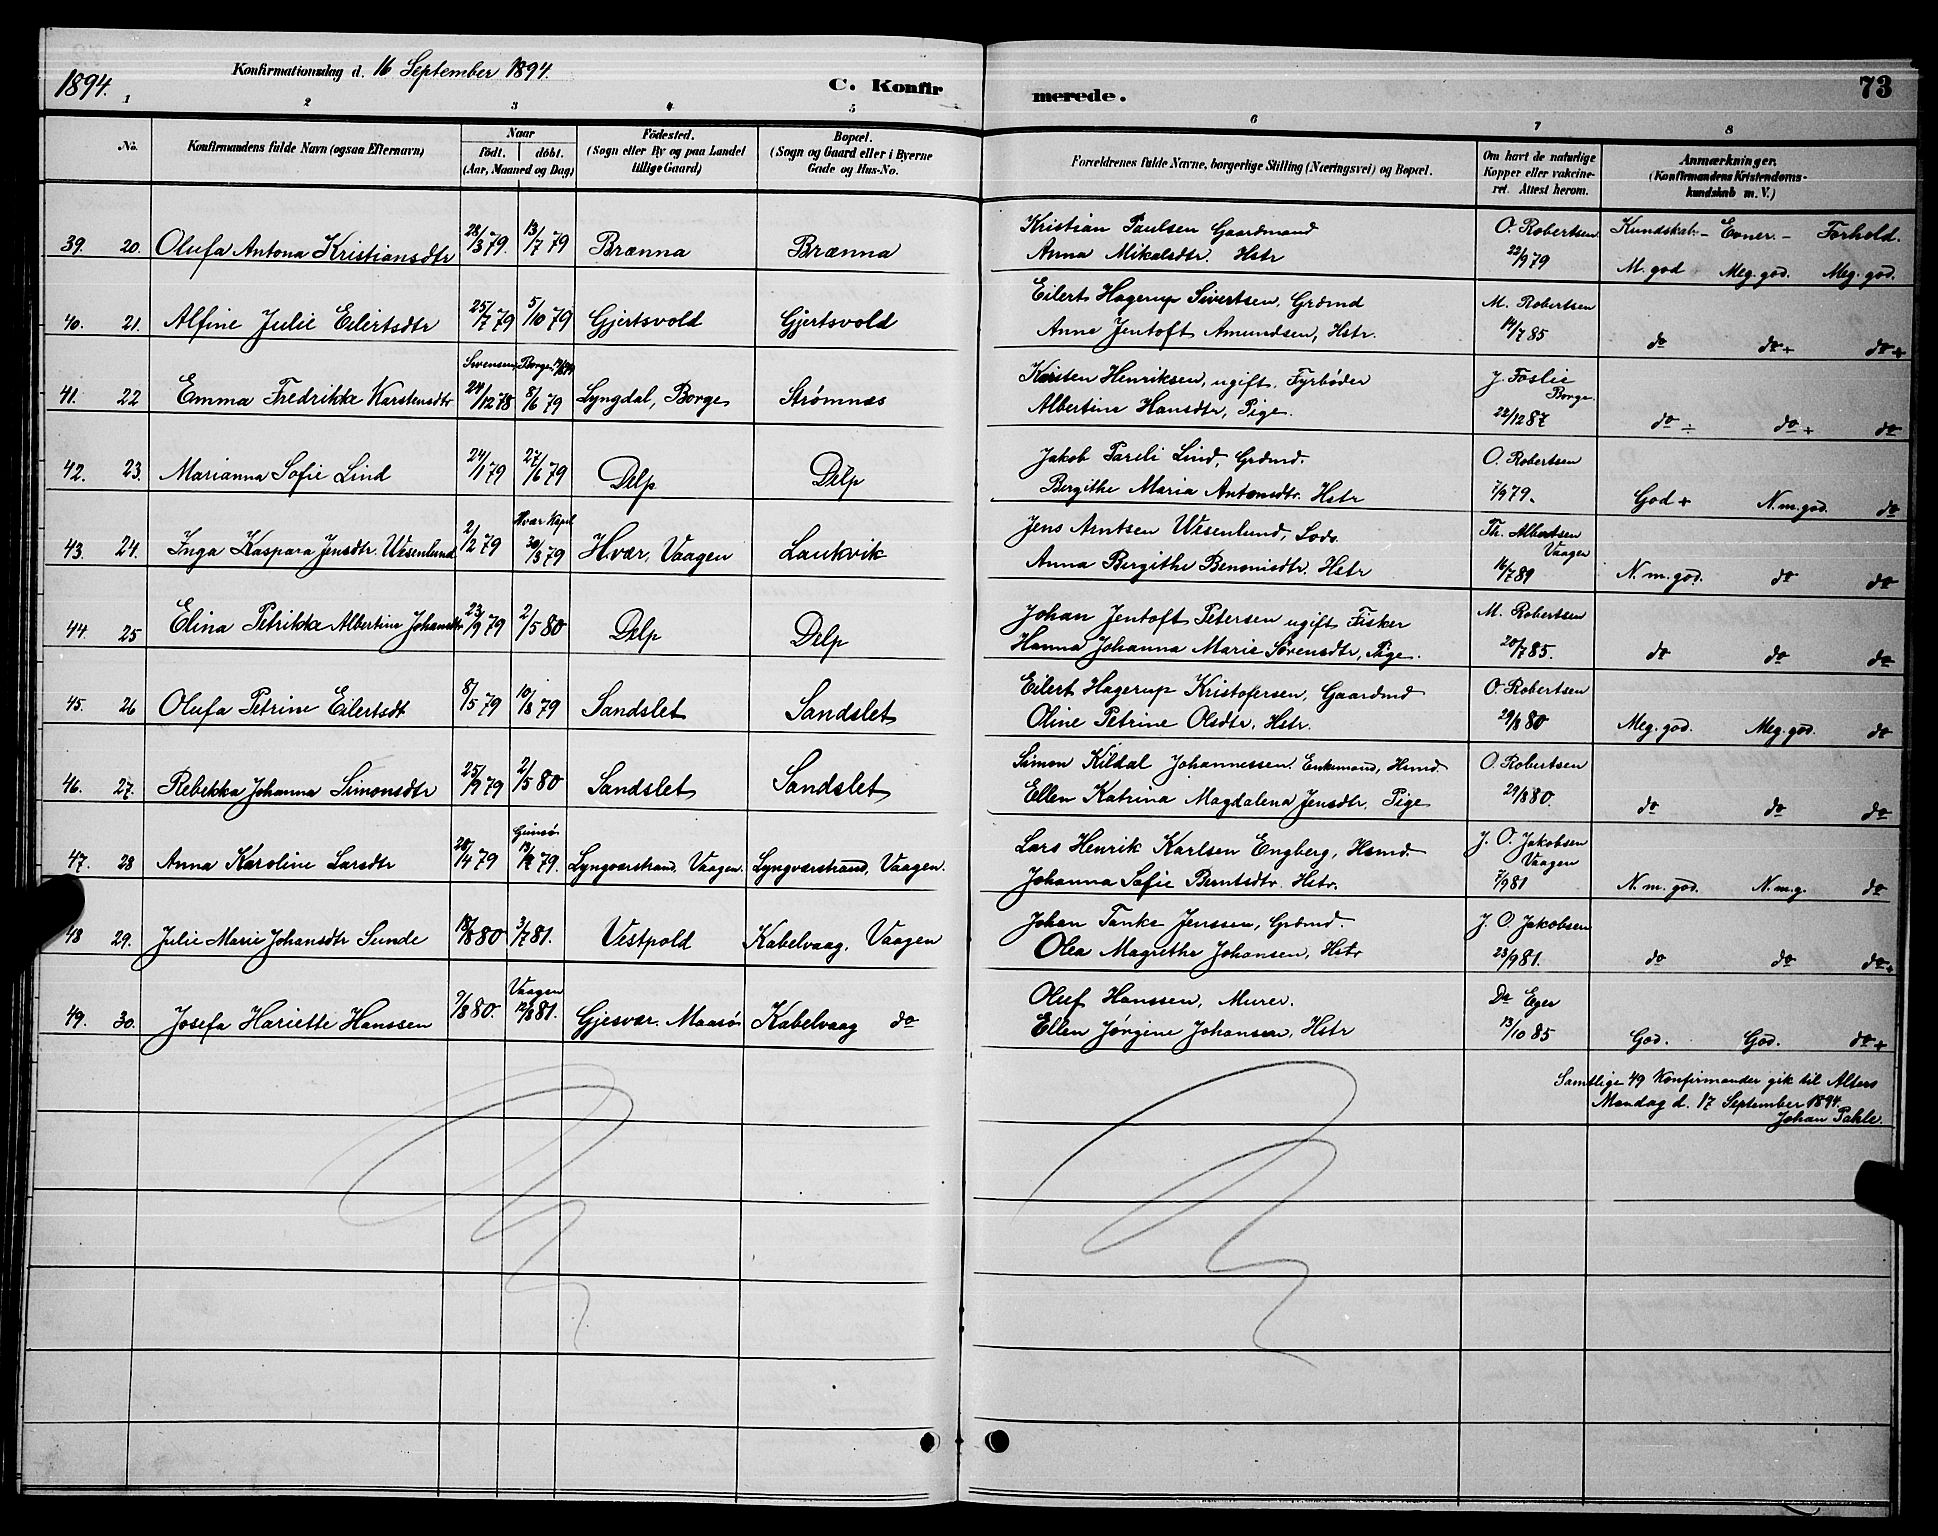 1894. Konfirmationsdag d. 16 September 1894. C. Konfirmerede. 73
1 2 3 4 5 6 7 8
No. Konfirmandens fulde Navn (ogsaa Efternavn) Naar født. døbt. (Aar, Maaned og Dag) Fødested. (Sogn eller By og paa Landet tillige Gaard) Bopæl. (Sogn og Gaard eller i Byerne Gade og Hus-No. Forældrenes fulde Navne, borgerlige Stilling (Næringsvei) og Bopæl. Om havt de naturlige Kopper eller vakcineret. Attest herom. Anmærkninger. (Konfirmandens Kristendomskundskab m. V.)
Kristian Paulsen Gaardmand O. Robertsen Kundskab. – Evner. – Forhold.
39. 20. Olufa Antona Kristiansdtr 28/3 79. 13/7 79 Brænna Brænna Anna Mikalsdtr. Hstr 22/9 79 M. god Meg. god. Meg. god.
Eilert Hagerup Sivertsen, Grdmd M. Robertsen
40. 21. Alfine Julie Eilertsdtr 25/7 79 5/10 79 Gjertsvold Gjertsvold Anne Jentoft Amundsen, Hstr. 14/7 85 do do+ do+
Karsten Henriksen, ugift, Fyrbøder J. Foslie Borge.
41. 22 Emma Fredrikke Karstensdtr 24/12 78 8/6 79 Lyngdal, Borge Strømnæs Albertine Hansdtr, Pige. 22/12 87 do ÷ do+ do
Jakob Pareli Lind, Grdmd. O. Robertsen
42. 23. Marianna Sofie Lind 24/1 79 27/6 79 Delp Delp Bergithe Maria Antonsdtr. Hstr 7/9 79. God + N. m. god. do
Hvær Kapel Jens Arntsen Wesenlund, Lods. Th. Albertsen Vaagen
43. 24. Inga Kaspara Jensdtr. Wesenlund 2/2 79 30/3 79 Hvær, Vaagen Laukvik Anna Bergithe Benonisdtr. Hstr 16/7 89 N. m. god. do do
Johan Jentoft Petersen ugift Fisker M. Robertsen
44. 25 Elina Petrikke Albertine Johansdtr 23/9 79 2/5 80 Delp Delp Hanna Johanna Marie Sørensdtr, Pige. 20/7 85. do do do
Eilert Hagerup Kristofersen, Gaardmd O. Robertsen
45. 26 Olufa Petrine Eilertsdt 8/5 79 10/8 79 Sandslet Sandslet Oline Petrine Olsdtr, Hstr. 29/8 80 Meg. god. Meg. god. do
Simon Kildal Johannessen. Enkemand, Hsmd. O. Robertsen
46. 27. Rebekka Johanna Simonsdtr 25/9 79 2/5 80 Sandslet Sandslet Ellen Katrina Magdalena Jensdtr, Pige 29/8 80. do do do
Gimsø Lars Henrik Karlsen Engberg, Hsmd. J. O. Jakobsen Vaagen
47. 28 Anna Karoline Larsdtr 20/4 79 79. Lyngværstrand, Vaagen. Lyngværstrand, Vaagen. Johanna Sofie Berntsdtr. Hstr. 7/9 81 N. m. god. N. m. g. do
Johan Tanke Jenssen, Grdmd. J. O. Jakobsen
48 29. Julie Marie Johansdtr Sunde 18/8 80 3/7 81. Vestpold Kabelvaag, Vaagen Olea Magrethe Johansen, Hstr 23/9 81. do do do+
Vaagen Oluf Hanssen, Murer. Dr Eger
49. 30. Josefa Hariette Hanssen 9/8 80. 12/8 81. Gjesvær. Maasø Kabelvaag do Ellen Jørgine Johansen, Hstr 13/10 85 God. God. do+
Samtlige 49 Konfirmander gik til Alters
Mandag d. 17 September 1894.
Johan Pahle.